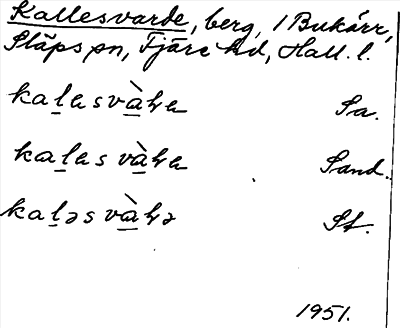 Kallesvarde, berg, i Bukärr,
Släps sn, Fjäre hd, Hall. l.
kaḻasvà̱ꞕa Sa.
kaḻas và̱ꞕa Sand.
kaḻəs và̱ꞕə St.
1951.